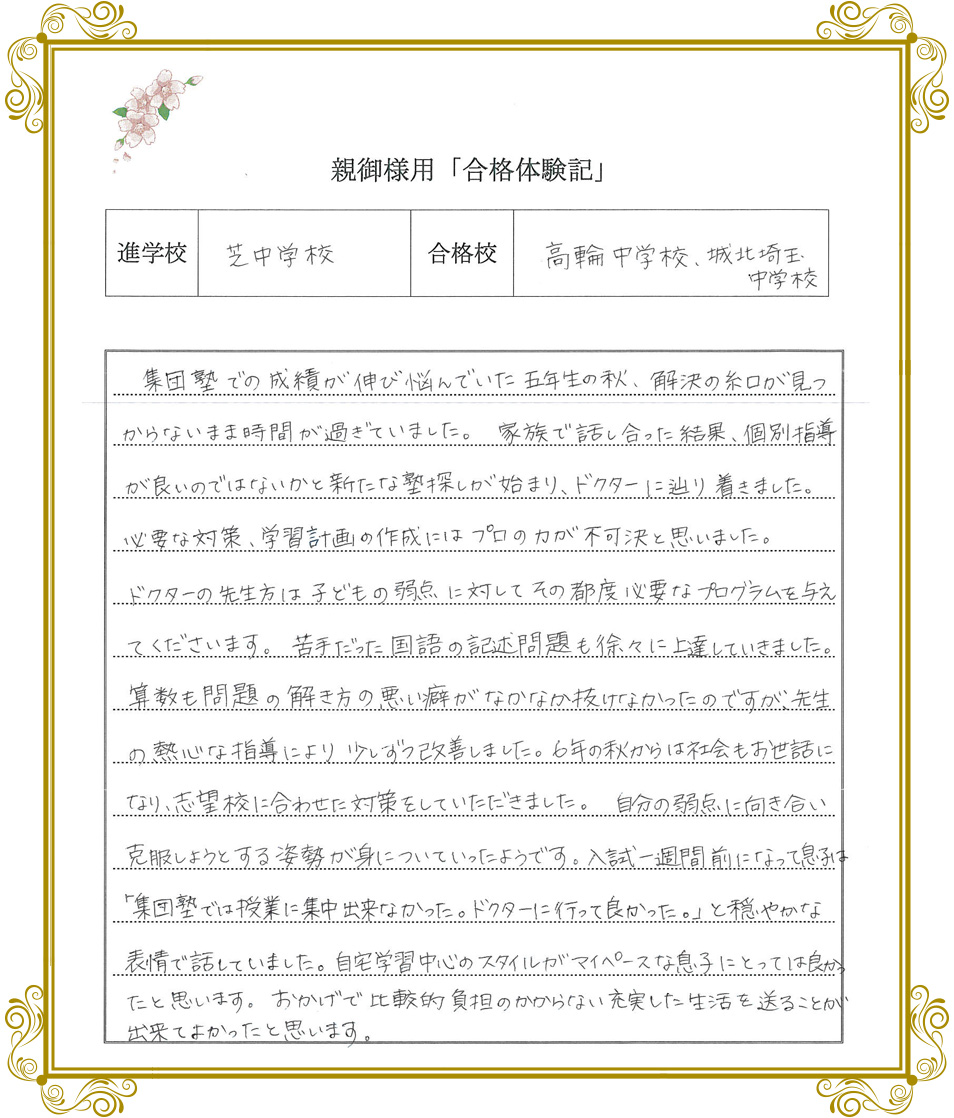 親御様用「合格体験記」
進学校 芝中学校 合格校 高輪中学校、城北埼玉
中学校
集団塾での成績が伸び悩んでいた五年生の秋、解決の糸口が見つ
からないまま時間が過ぎていました。 家族で話し合った結果、個別指導
が良いのではないかと新たな塾探しが始まり、ドクターに辿り着きました。
必要な対策、学習計画の作成にはプロの力が不可決と思いました。
ドクターの先生方は子どもの弱点に対してその都度必要なプログラムを与え
てくださいます。 苦手だった国語の記述問題も徐々に上達していきました。
算数も問題の解き方の悪い癖がなかなか抜けなかったのですが、先生
の熱心な指導により少しずつ改善しました。6年の秋からは社会もお世話に
なり、志望校に合わせた対策をしていただきました。 自分の弱点に向き合い
克服しようとする姿勢が身についていったようです。入試一週間前になって息子は
「集団塾では授業に集中出来なかった。ドクターに行って良かった。」と穏やかな
表情で話していました。自宅学習中心のスタイルがマイペースな息子にとっては良かっ
たと思います。 おかげで比較的負担のかからない充実した生活を送ることが
出来てよかったと思います。